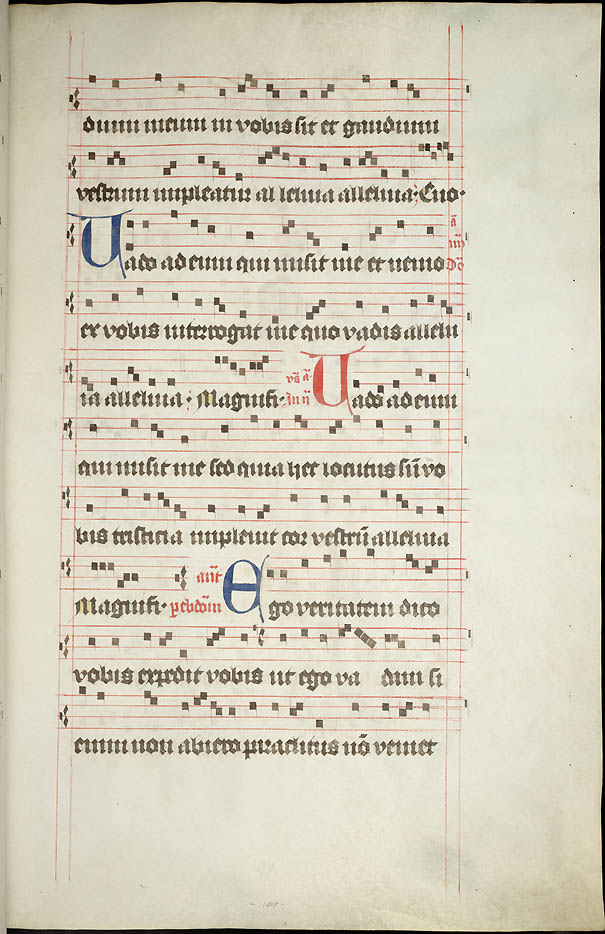 dium meum in vobis sit et gaudium
vestrum impleatur al leluia alleluia Euo
Uado ad eum qui misit me et nemo
ex vobis interrogat me quo vadis allelu
ia alleluia Magnifi Uado ad eum
qui misit me sed quia hec locutus sū vo
bis tristicia impleuit cor vestrū alleluia
Magnifi Ego veritatem dico
vobis expedit vobis ut ego va dam si
enim non abiero paraclitus nō veniet